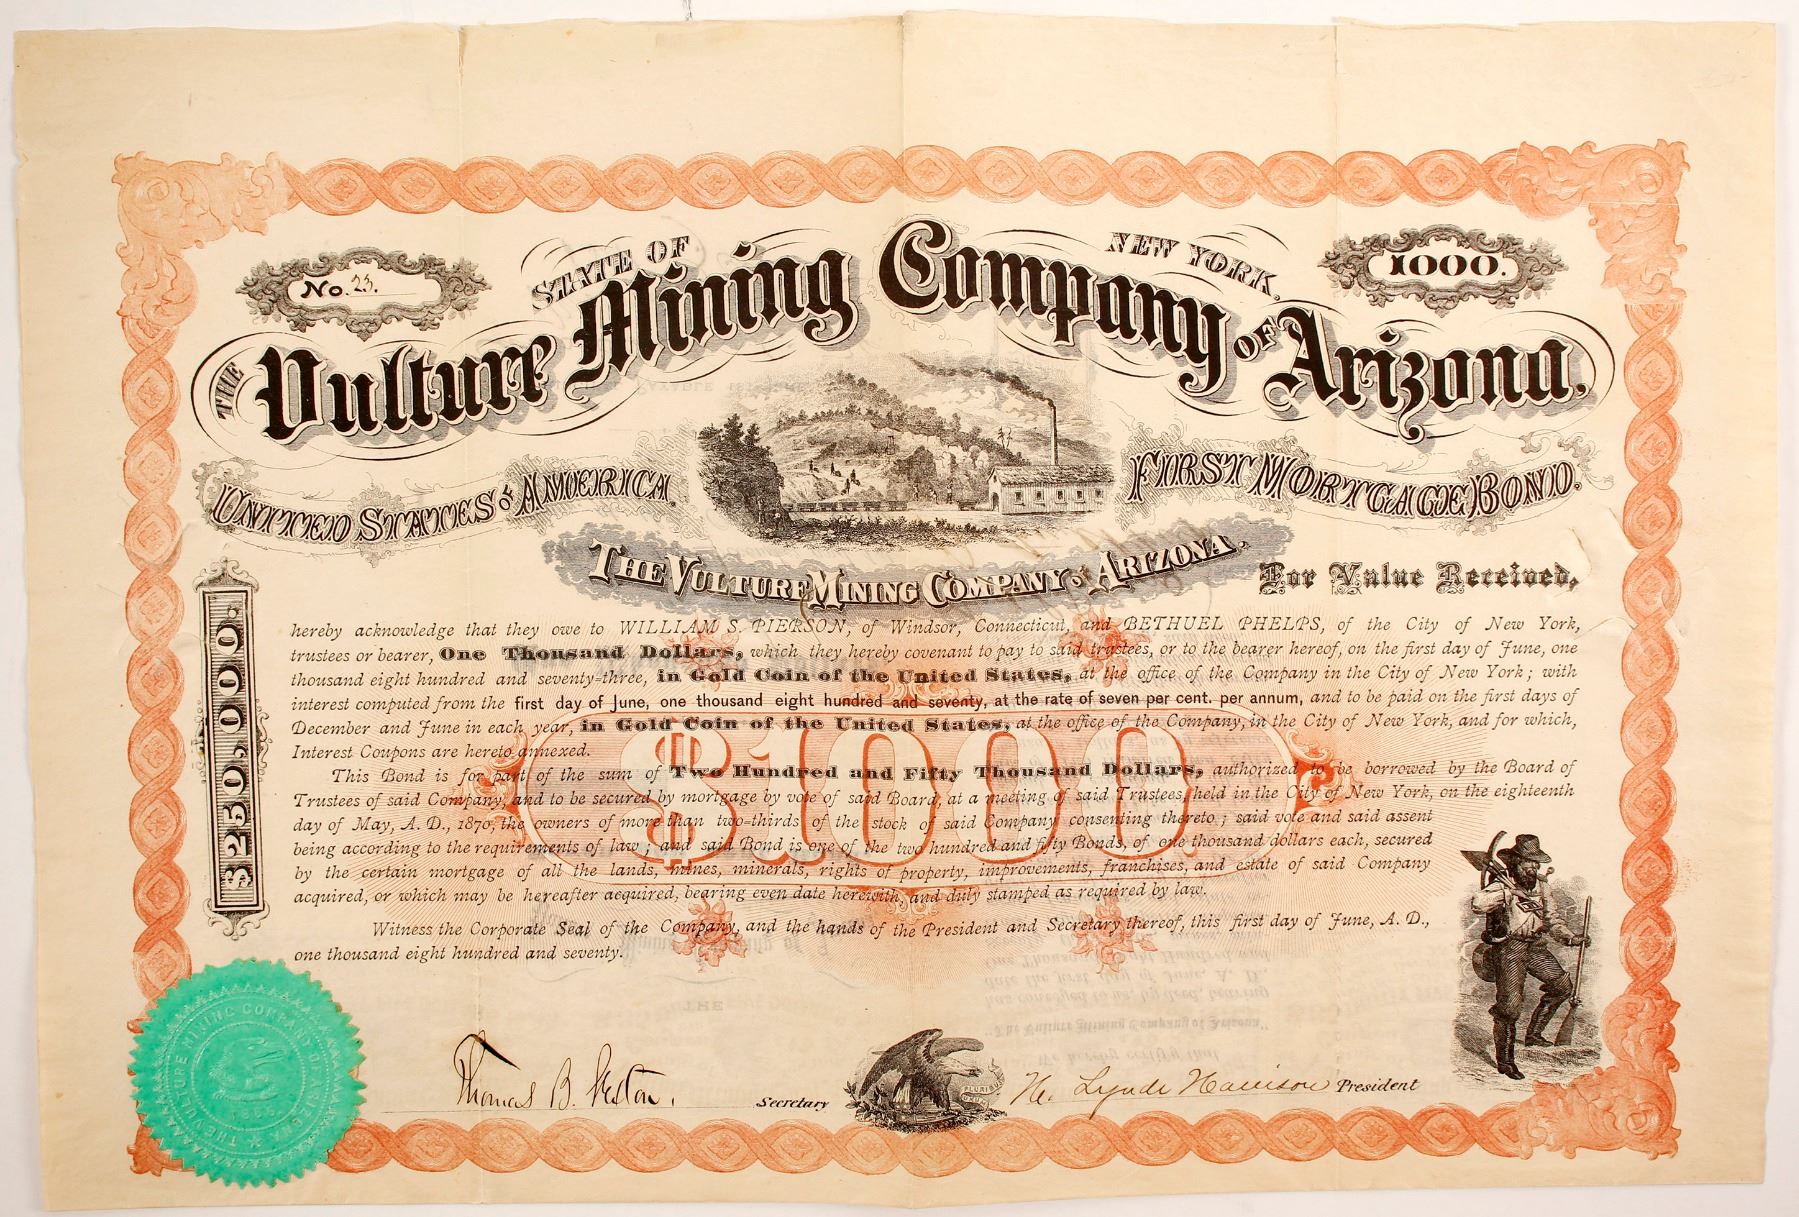 No. 23.
STATE OF NEW YORK.
1000.
THE Vulture Mining Company OF Arizona,
UNITED STATES OF AMERICA.
FIRST MORTGAGE BOND.
THE VULTURE MINING COMPANY OF ARIZONA.
For Value Received,
hereby acknowledge that they owe to WILLIAM S. PIERSON, of Windsor, Connecticut, and BETHUEL PHELPS, of the City of New York,
trustees or bearer, One Thousand Dollars, which they hereby covenant to pay to said trustees, or to the bearer hereof, on the first day of June, one
thousand eight hundred and seventy-three, in Gold Coin of the United States, at the office of the Company in the City of New York; with
interest computed from the first day of June, one thousand eight hundred and seventy, at the rate of seven per cent. per annum, and to be paid on the first days of
December and June in each year, in Gold Coin of the United States, at the office of the Company, in the City of New York, and for which,
Interest Coupons are hereto annexed.
This Bond is for part of the sum of Two Hundred and Fifty Thousand Dollars, authorized to be borrowed by the Board of
Trustees of said Company, and to be secured by mortgage by vote of said Board, at a meeting of said Trustees, held in the City of New York, on the eighteenth
day of May, A. D., 1870, the owners of more than two-thirds of the stock of said Company consenting thereto; said vote and said assent
being according to the requirements of law; and said Bond is one of the two hundred and fifty Bonds, of one thousand dollars each, secured
by the certain mortgage of all the lands, mines, minerals, rights of property, improvements, franchises, and estate of said Company
acquired, or which may be hereafter acquired, bearing even date herewith, and duly stamped as required by law.
Witness the Corporate Seal of the Company, and the hands of the President and Secretary thereof, this first day of June, A. D.,
one thousand eight hundred and seventy.
$250,000.
$1000
THE VULTURE MINING COMPANY OF ARIZONA
Thomas B. Sexton. Secretary
PLURIBUS UNUM
H. Lynde Harrison President